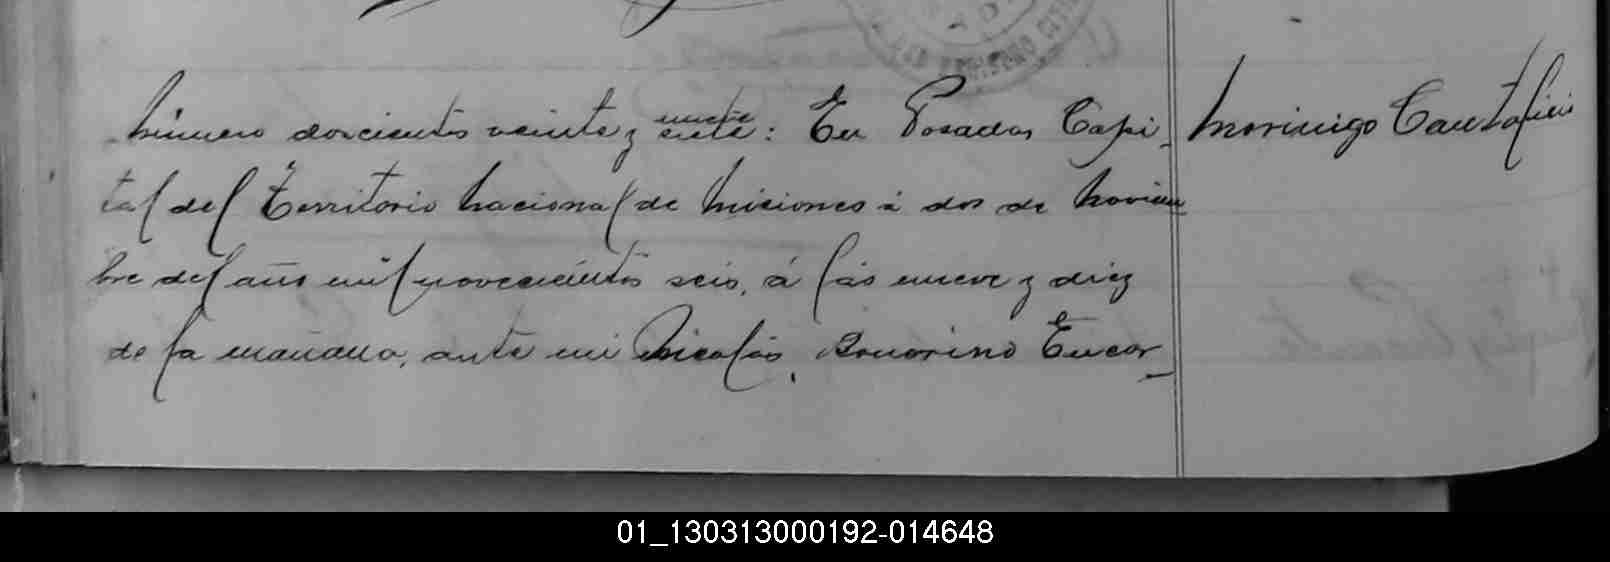 Número doscientos veinte y nueve siete: En Posadas Capi-
tal del Territorio Nacional de Misiones á dos de Noviem
bre del año mil novecientos seis, á las nueve y diez
de la mañana, ante mi Nicolás, Bonorino Encar-
Morinigo Cantalicio
01_130313000192-014648